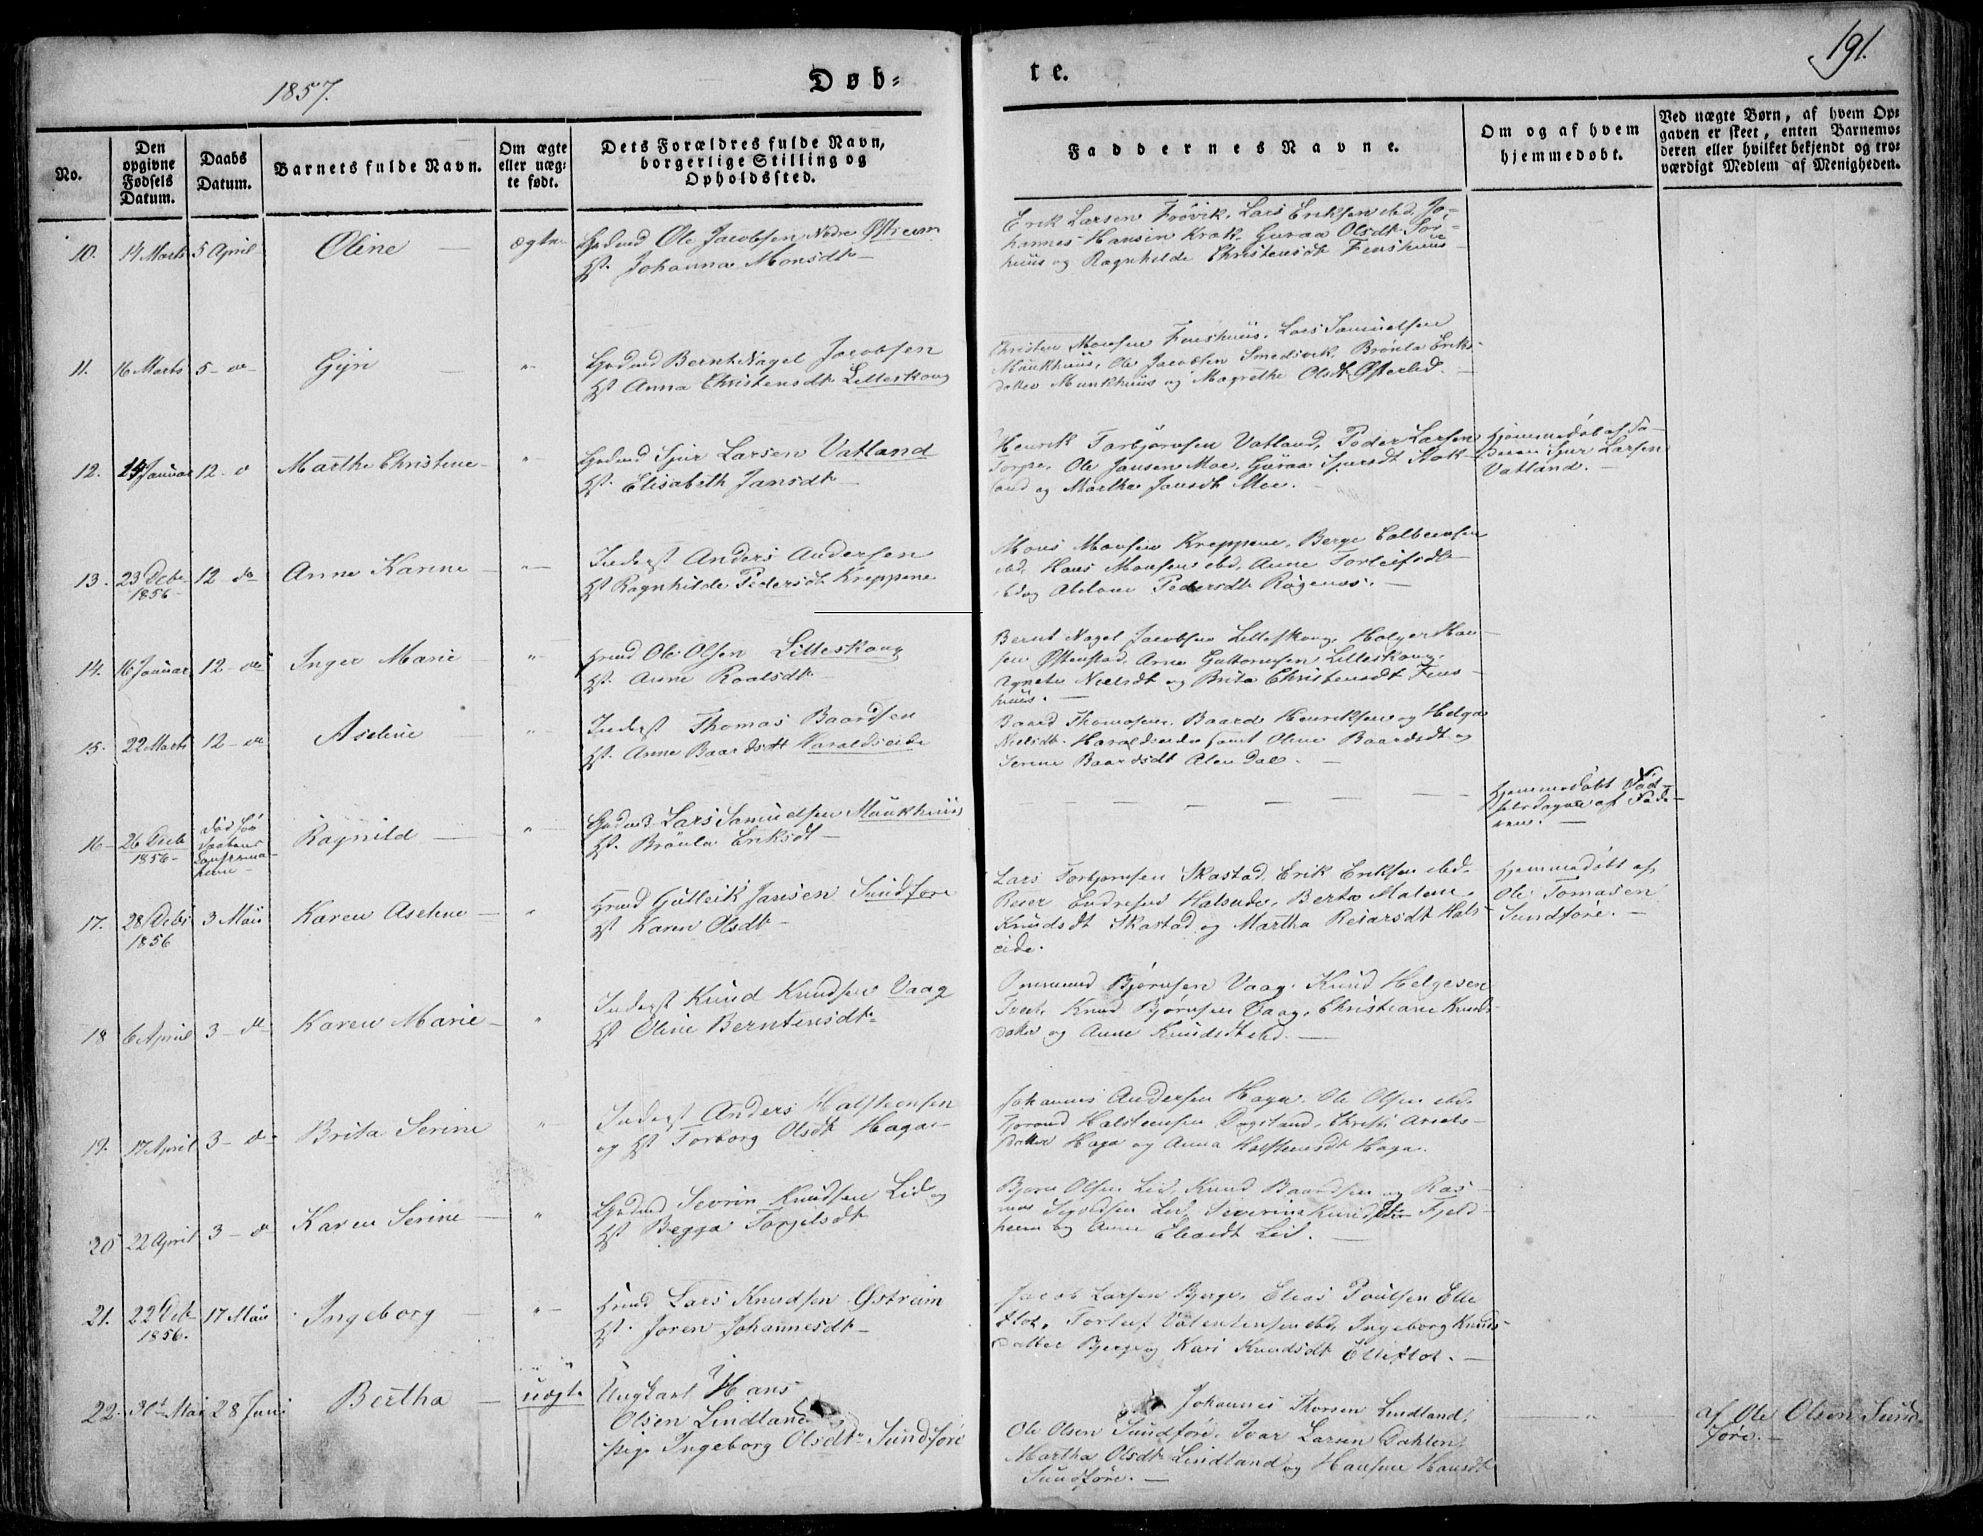 1857.
Døb-
te.
191.
No.
Den opgivne Fødsels Datum.
Daabs Datum.
Barnets fulde Navn.
Om ægte eller uægte født.
Dets Forældres fulde Navn, borgerlige Stilling og Opholdssted.
Faddernes Navne.
Om og af hvem hjemmedøbt.
Ved uægte Børn, af hvem Opgaven er skeet, enten Barnemoderen eller hvilket bekjendt og troværdigt Medlem af Menigheden.
10. 14 Marts 5 April Oline ægte Gdmd Ole Jacobsen Nedre Østrem
Hst. Johanna Monsdt
Erik Larsen Frøvik, Lars Eriksen ibd, Jo-
hannes Hansen Krak, Guraa Olsdt Tor-
huus og Ragnhilde Christensdt Finshuus
11. 16 Marts 5 - do - Gyri " Gdmd Bernt Nagel Jacobsen
Hst Anna Christensdt Litleskoug
Christen Monsen Finshuus, Lars Samuelsen
Munkhuus, Ole Jacobsen Smedsvik, Brønla Eriks-
datter Munkhuus og Magrethe Olsdt Østerlid.
12. 24 Januar 12 - d Marthe Christine " Gdmd Sjur Larsen Vatland
Hst. Elisabeth Jansdt
Henrik Torbjørnsen Vatland, Peder Larsen
Torpe, Ole Jansen Moe, Guraa Sjursdt Stok-
land og Martha Jansdt Moe.
Hjemmedøbt af Fa-
deren Sjur Larsen
Vatland.
13. 23 Decbr 1856 12 do Anne Karine " Inderst Anders Andersen
Hst Ragnhilde Pedersdt Kreppene
Mons Monsen Kreppene, Berge Colbensen
ibd, Hans Monsen ibd, Anne Torleifsdt
ibd og Abelone Pedersdt Røgenes.
14. 16 Januar 12 - do Inger Marie " Hmd Ole Olsen Litleskoug
Hst. Anne Roalsdt
Bernt Nagel Jacobsen Litleskoug, Holger Han-
sen Østenstad, Arne Guttormsen Litleskoug,
Agnete Nielsdt og Brita Christensdt Fins-
huus.
15. 22 Marts 12 - do Aseline " Inderst Thomas Baardsen
Hst. Anne Baardsdt Haraldseide
Baard Thomasen, Baard Henriksen og Helga
Nielsdt Haraldseide samt Oline Baardsdt og
Serine Baardsdt Alendal.
16 26 Decb 1856 død før Daabens Confirma- Ragnild " Gdmd Lars Samuelsen Munkhuus
Hst. Brønla Eriksdt
Hjemmedøbt Fød-
selsdagen af Fade-
ren.
17. 28 Decbr 1856 3 Mai Karen Aseline " Hmd Gulleik Jansen Sundføre
Hst Karen Olsdt
Lars Torbjørnsen Skastad, Erik Eriksen ibd,
Reier Endresen Halseide, Berta Malene
Knudsdt Skastad og Martha Reiarsdt Hals-
eide.
Hjemmedøbt af
Ole Tomasen
Sundføre.
18 6 April 3 - d Karen Marie " Inderst Knud Knudsen Vaag
Hst Oline Berntensdt
Ommund Bjørnsen Vaag, Knud Helgesen
Tveit, Knud Bjørnsen Vaag, Christiane Knuds-
datter og Anne Knudsdt ibd.
19. 17 April 3 - d Brita Serine " Inderst Anders Halstensen
og Hst Torborg Olsdt Haga
Johannes Andersen Haga, Ole Olsen ibd,
Halstensen Dagsland,
datter Haga og Anna Halstensdt Haga.
20 22 April 3 - d Karen Serine " Gdmd Sevrin Knudsen Lid og
Hst Begga Torjilsdt
Bjørn Olsen Lid, Knud Baardsen og Ras-
mus Sivertsen Lid, Severine Knudsdtr Fjeld-
heim og Anne Eliasdt Lid.
21. 22 Dcb 1856. 17 Mai Ingeborg " Hmd Lars Knudsen Østrem
Hst. Joren Johannesdt
Jacob Larsen Bjerge, Elias Poulsen Elle-
flot, Torleif Valentinsen ibd, Ingeborg Knuds-
datter Bjerge og Kari Knudsdt Elleflot.
22. 30te Mai 28 Juni Bertha uægte Ungkarl Hans
Olsen Lindland
Pige Ingeborg Olsdtr Sundføre
Johannes Thorsen Lindland,
Ole Olsen Sundføre, Ivar Larsen Dahlen,
Martha Olsdt Lindland og Hansine Hansdt
Sundføre.
"
af Ole Olsen Sund-
føre.